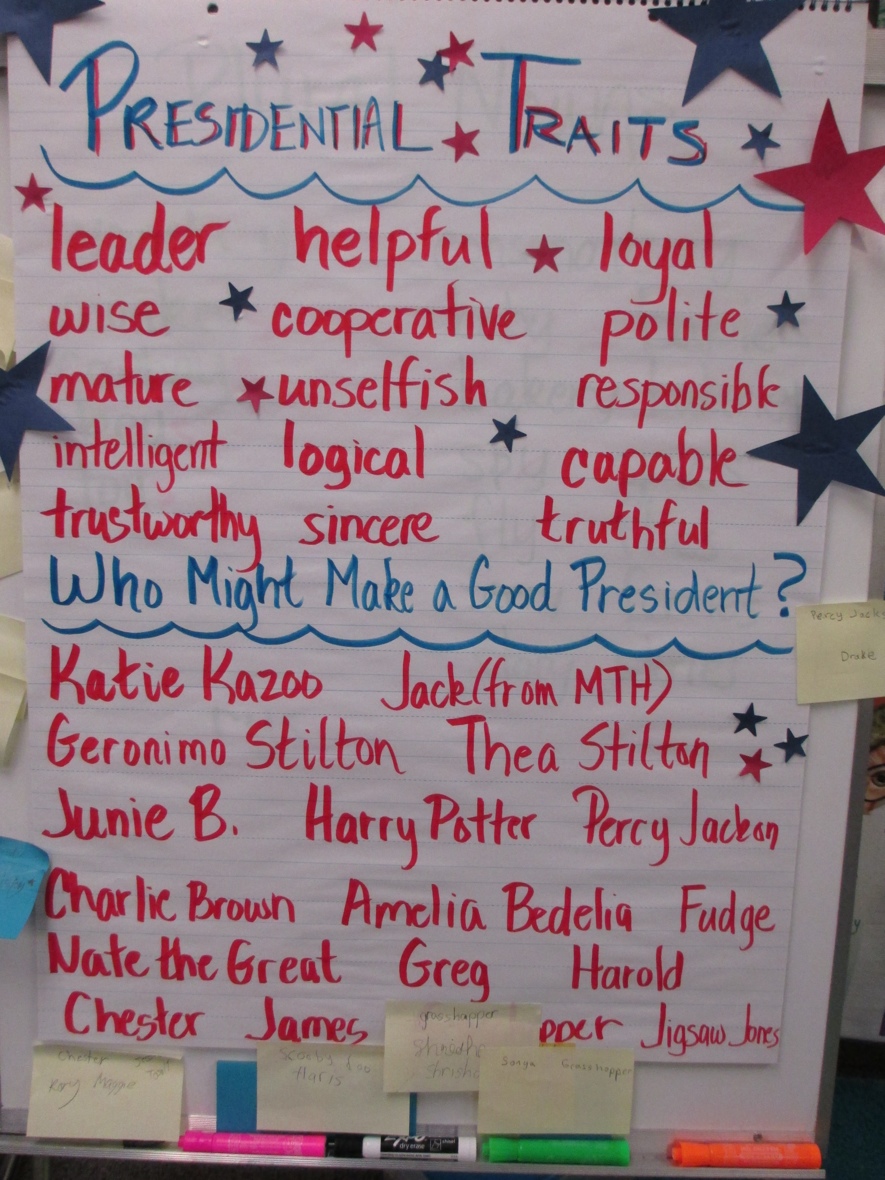 PRESIDENTIAL TRAITS
leader helpful loyal
wise cooperative polite
mature unselfish responsible
intelligent logical capable
trustworthy sincere truthful
Who Might Make a Good President?
Katie Kazoo Jack (from MTH)
Geronimo Stilton Thea Stilton
Junie B. Harry Potter Percy Jackon
Charlie Brown Amelia Bedelia Fudge
Nate the Great Greg Harold
Chester James Jigsaw Jones
Percy
Drake
grasshopper
Chester
Maggie
Sonya Grasshopper
dry erase